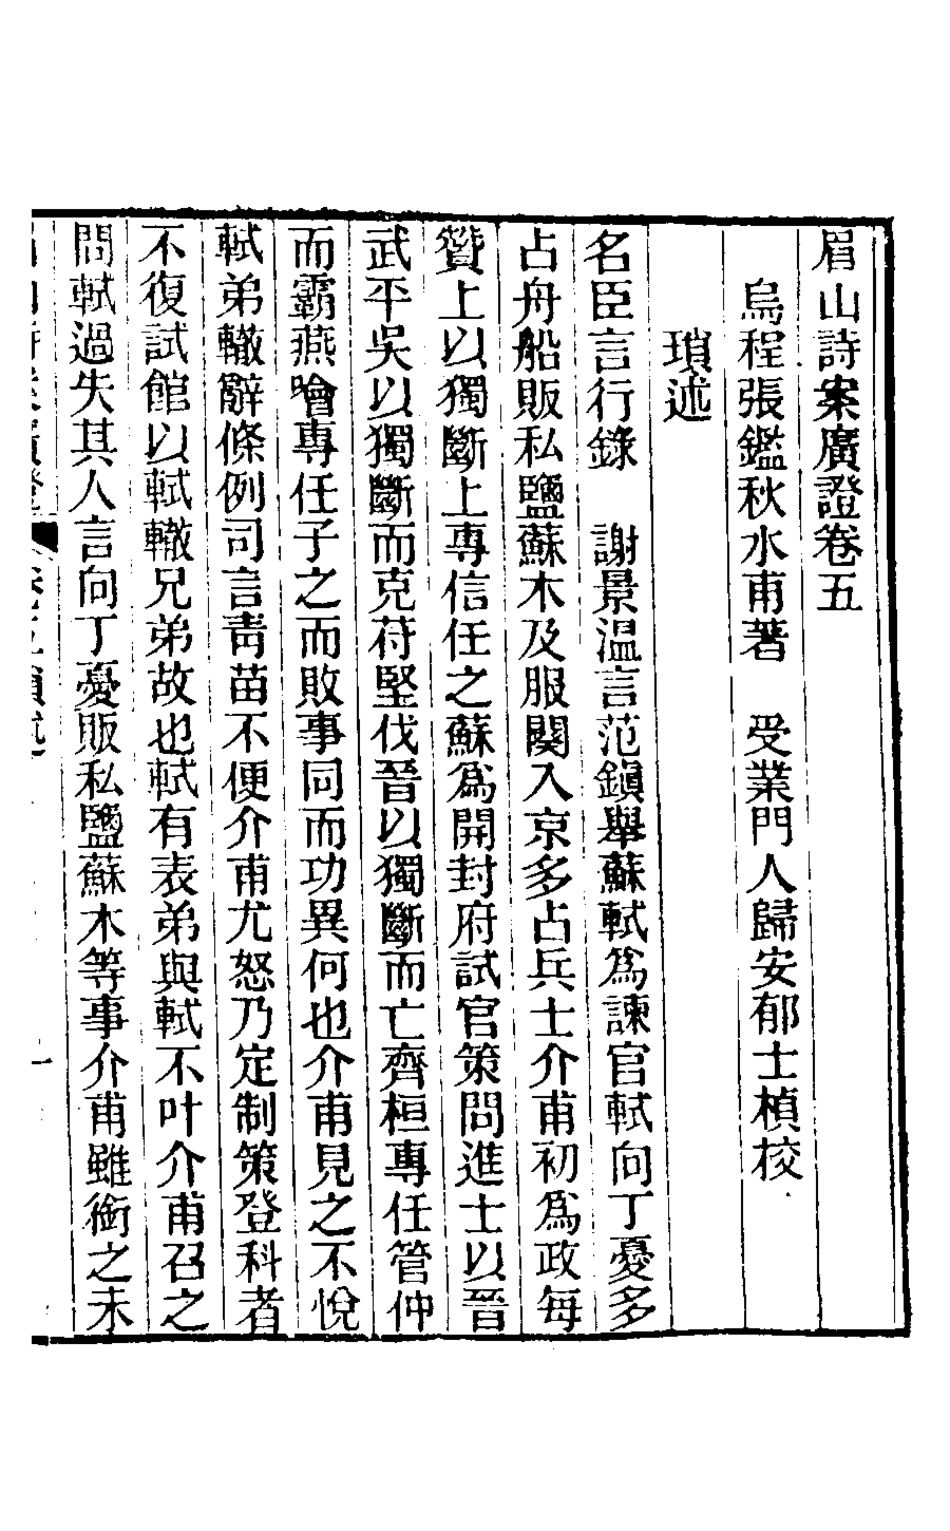 眉山詩案廣證卷五
烏程張鑑秋水甫著　受業門人歸安郁士楨校
瑣述
名臣言行錄　謝景温言范鎭舉蘇軾爲諫官軾向丁憂多
占舟船販私鹽蘇木及服闋入京多占兵士介甫初爲政每
贊上以獨斷上專信任之蘇爲開封府試官策問進士以晉
武平吳以獨斷而克苻堅伐晉以獨斷而亡齊桓專任管仲
而霸燕噲專任子之而敗事同而功異何也介甫見之不悅
軾弟轍辭條例司言靑苗不便介甫尤怒乃定制策登科者
不復試館以軾轍兄弟故也軾有表弟與軾不叶介甫召之
問軾過失其人言向丁憂販私鹽蘇木等事介甫雖銜之未